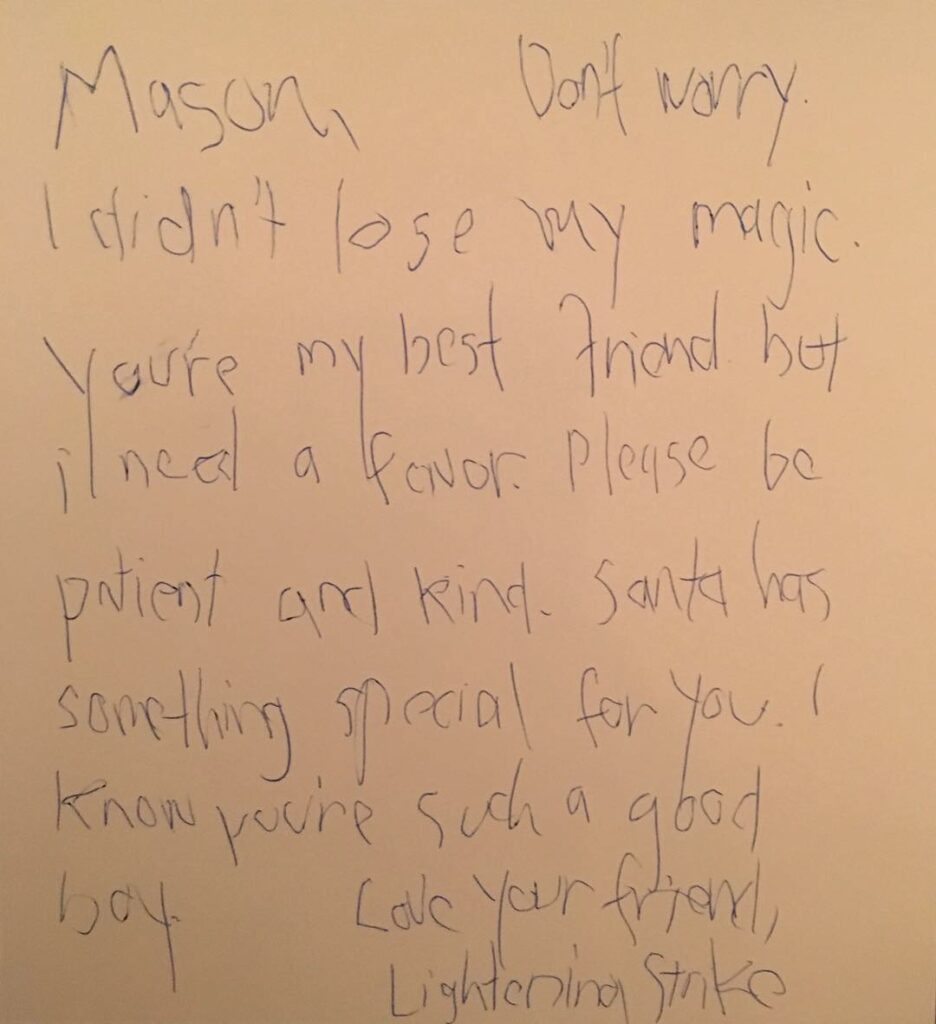 Mason, Don't worry.
I didn't lose my magic.
You're my best friend but
i need a favor. Please be
patient and kind. Santa has
something special for you. I
know you're such a good
boy. Love your friend,
Lightening Strike